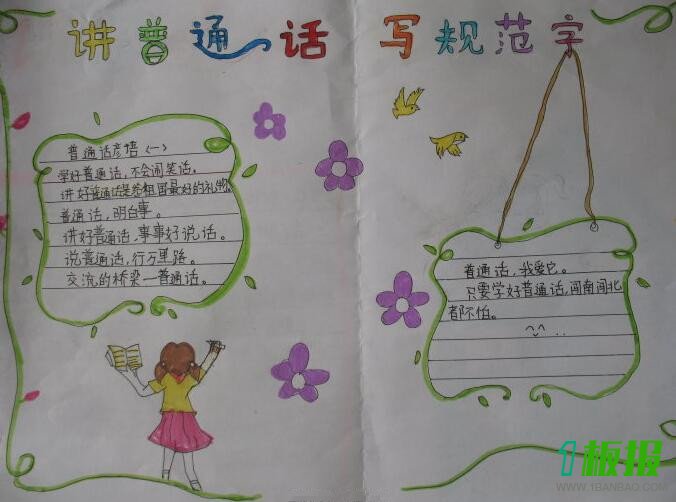 讲普通话 写规范字
普通话彦培(一)
学好普通话,不会闹笑话。
讲好普通话是给祖国最好的礼物。
普通话,明白事。
讲好普通话,事事好说话。
说普通话,行万里路。
交流的桥梁—普通话。
普通话,我爱它。
只要学好普通话,闯南闯北
都不怕。
1板报
WWW.1BANBAO.COM